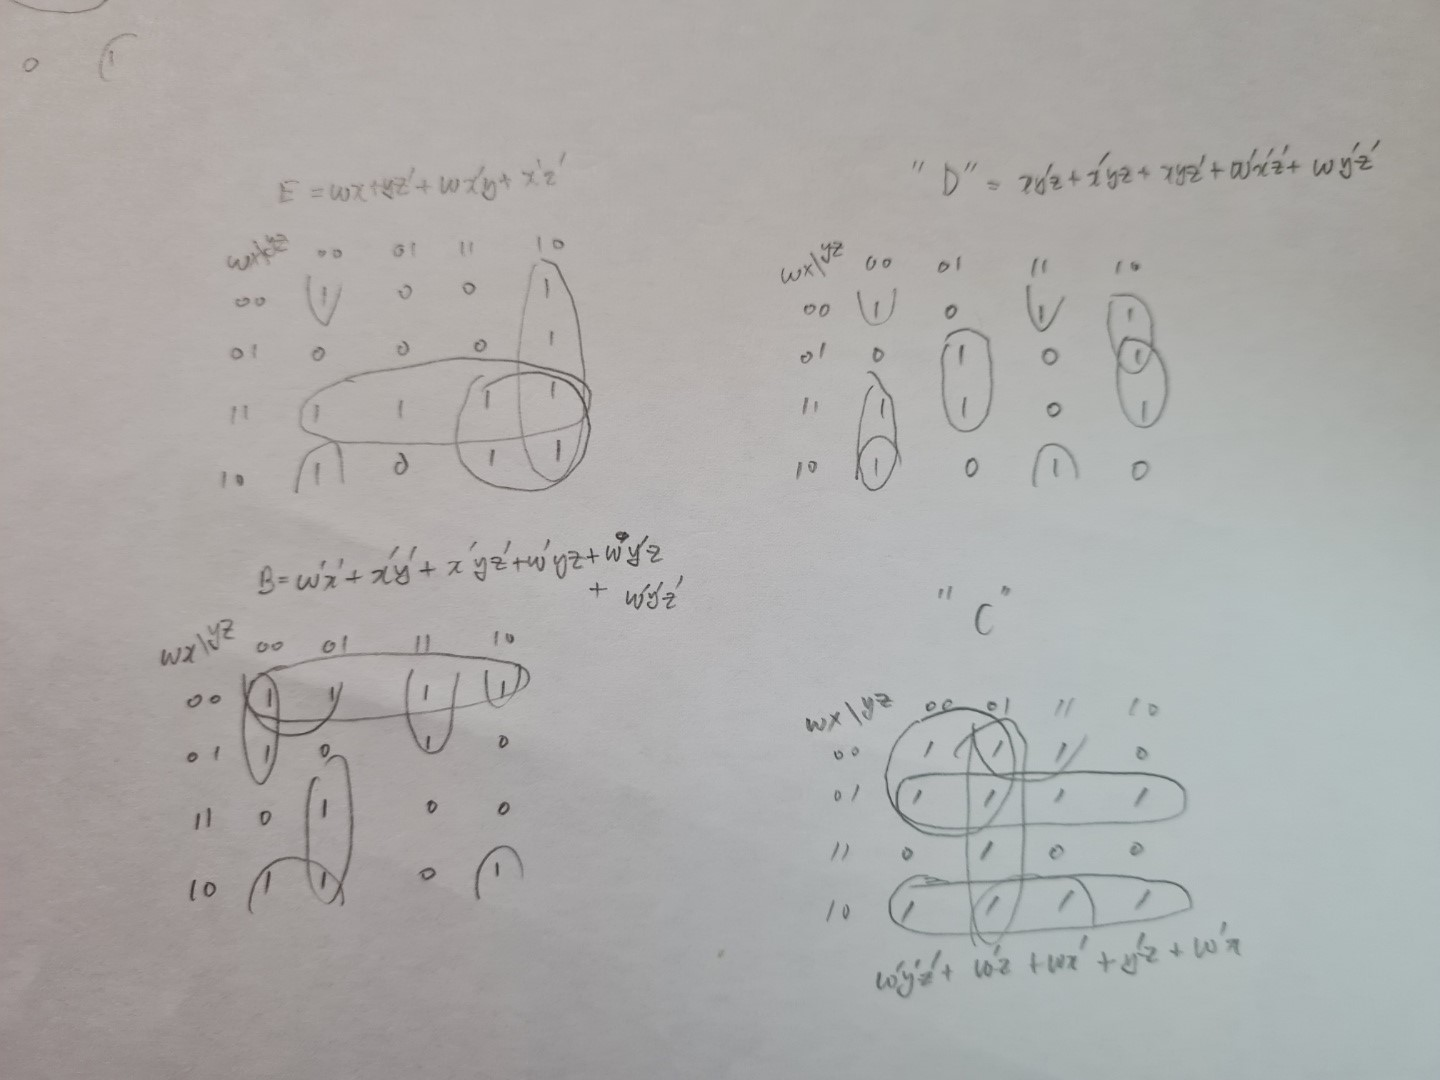 0 1
E = wx+yz'+ wx'y+ x'z'
wx\yz 00 01 11 10
00 1 0 0 1
01 0 0 0 1
11 1 1 1 1
10 1 0 1 1
"D" = xy'z + x'yz + xyz' + w'x'z' + wy'z'
wx\yz 00 01 11 10
00 1 0 1 1
01 0 1 0 1
11 1 1 0 1
10 1 0 1 0
B= w'x' + x'y' + x'yz' + w'yz + wy'z
+ w'y'z'
wx\yz 00 01 11 10
00 1 1 1 1
01 1 0 1 0
11 0 1 0 0
10 1 1 0 1
"C"
wx\yz 00 01 11 10
00 1 1 1 0
01 1 1 1 1
11 0 1 0 0
10 1 1 1 1
w'y'z' + w'z + wx' + y'z + w'x